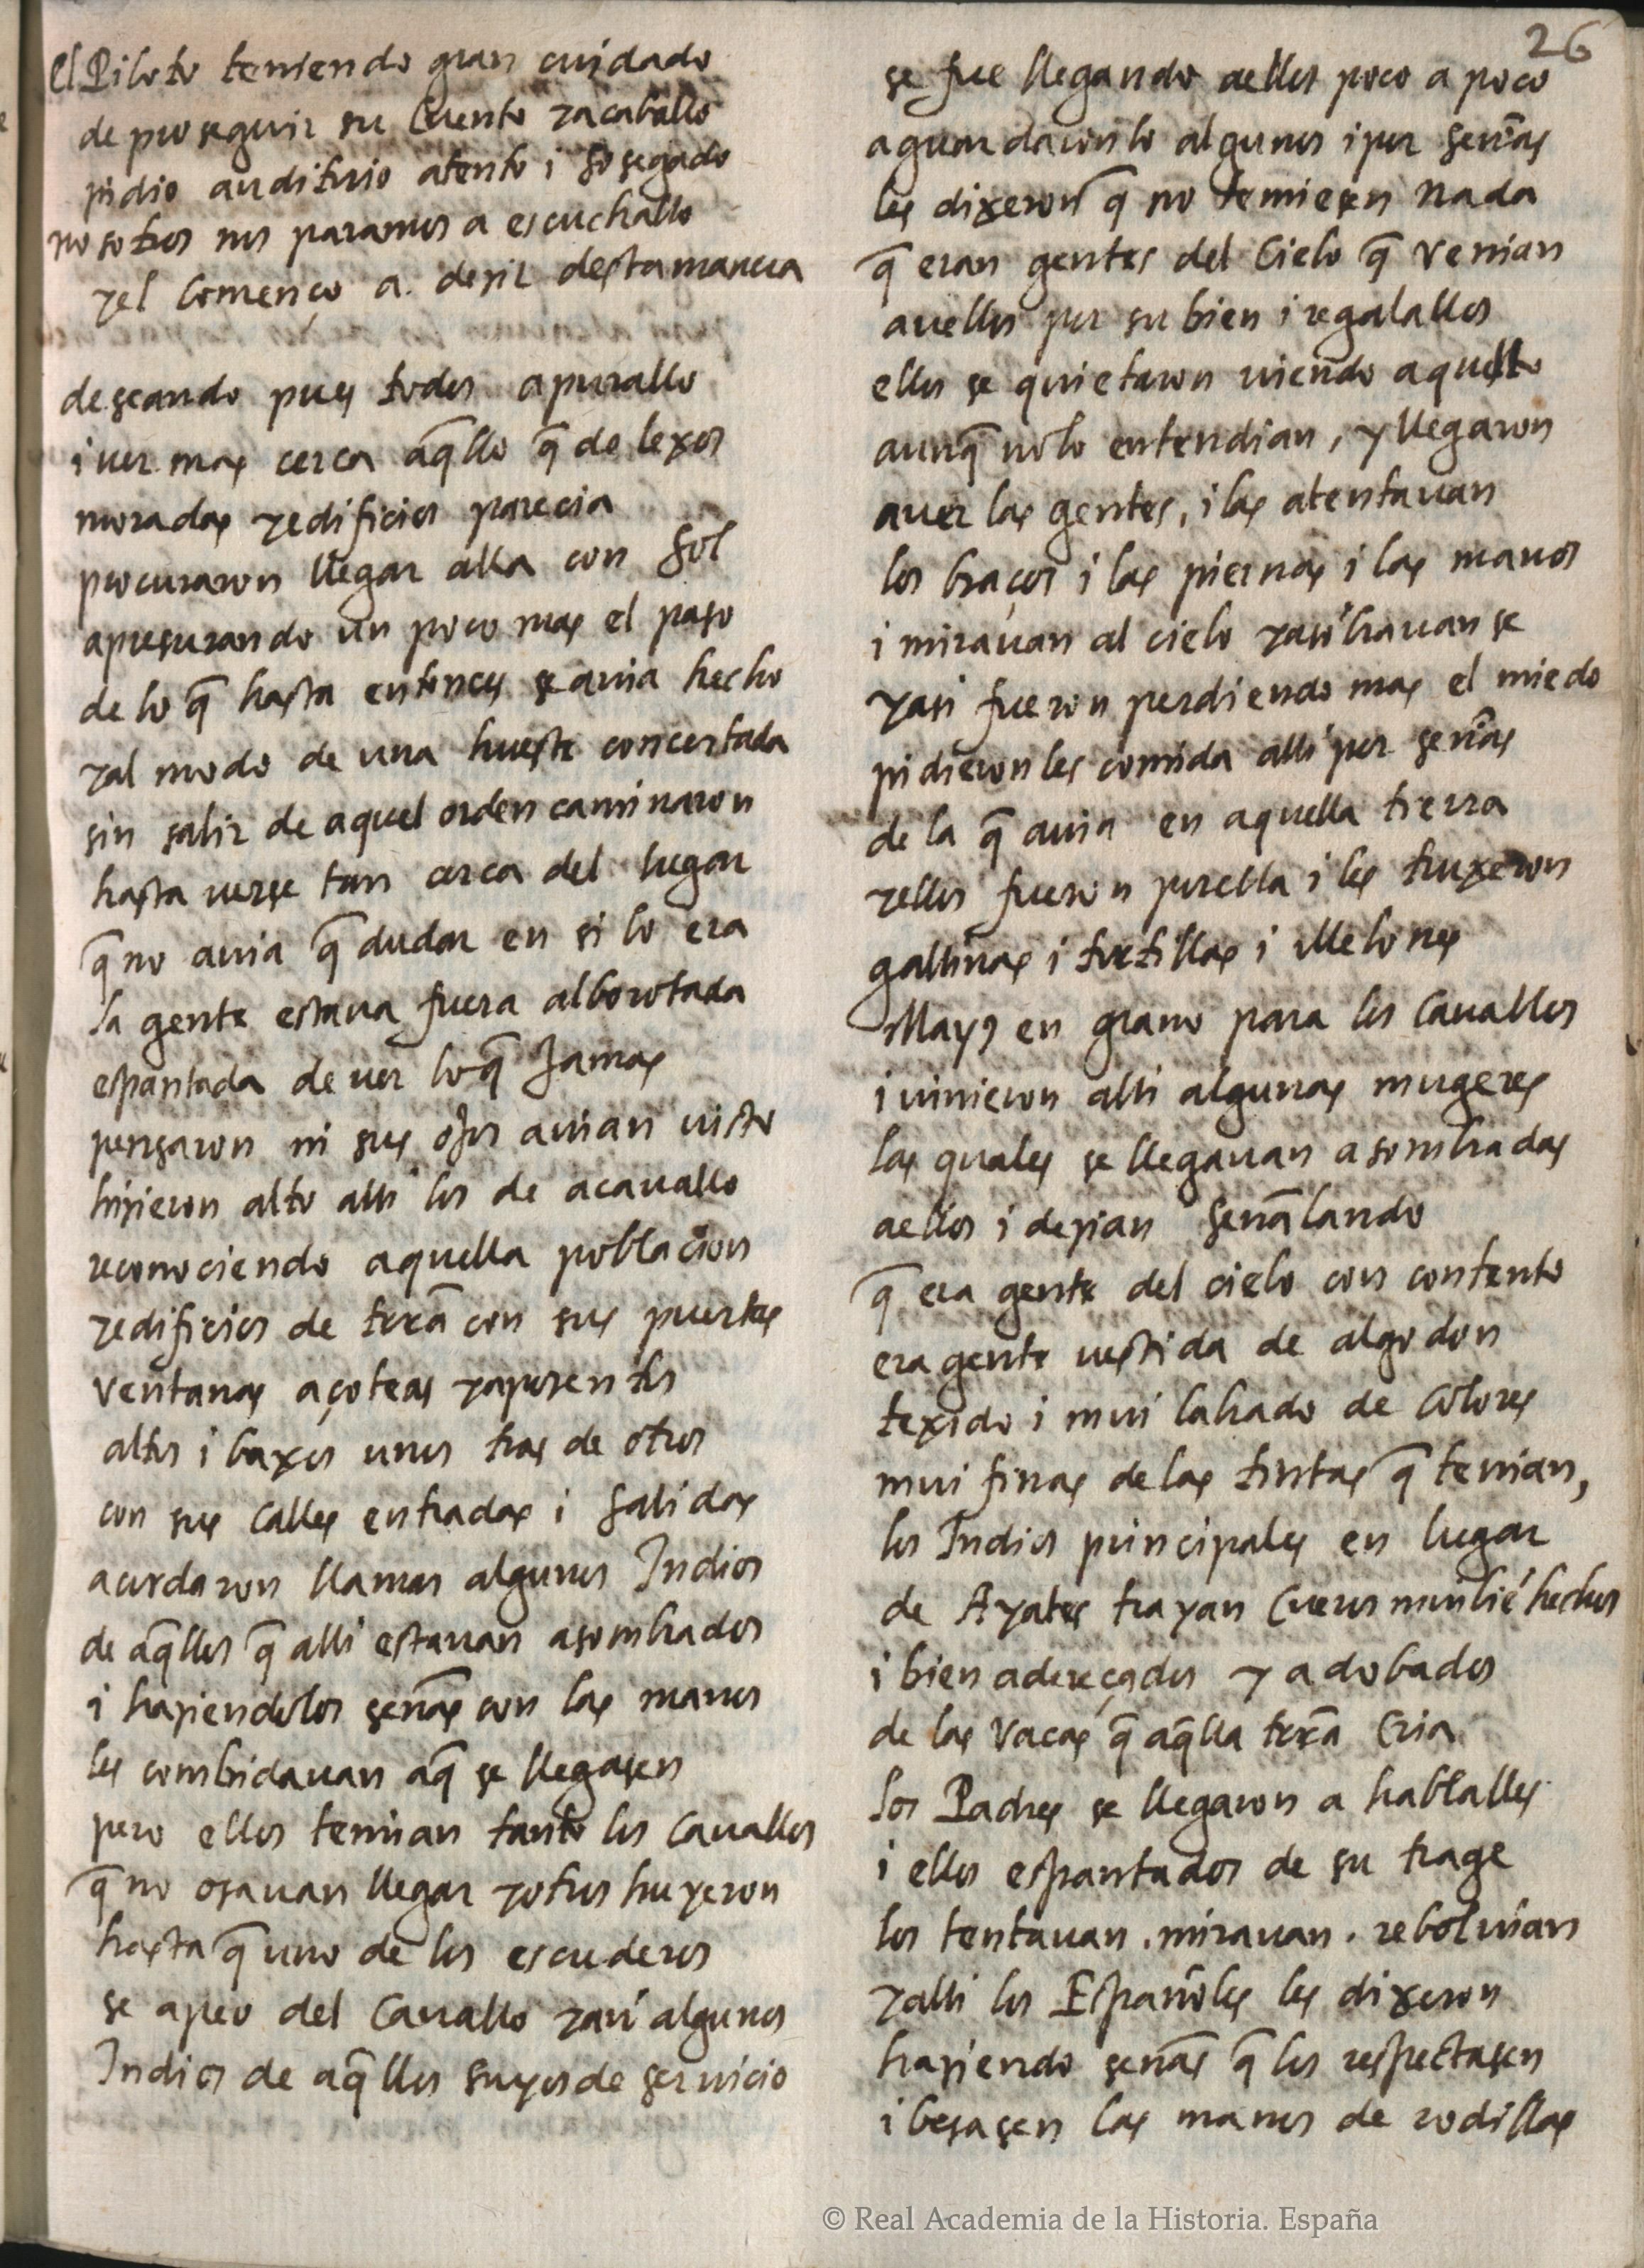 26
el Piloto teniendo gran cuidado
de proseguir su Cuento yacaballo
pidio auditorio atento i sosegado
nosotros nos paramos a escuchallo
yel Començo a. dezir destamanera
deseando pues todos apurallo
i uer mas cerca aq̃llo q̃ de lexos
moradas yedificios parecia
procuraron llegar alla con Sol
apresurando un poco mas el paso
de lo q̃ hasta entonces se auia hecho
yal modo de una hueste concertada
sin salir de aquel orden caminaron
hasta uerse tan cerca del lugar
q̃ no auia q̃ dudar en si lo era
la gente estaua fuera alborotada
espantada de uer loq̃ Jamas
pensaron ni sus ojos auian uisto
hizieron alto alli los de acauallo
reconociendo aquella poblacion
yedificios de trr̃a con sus puertas
Ventanas açoteas yaposentos
altos i baxos unos tras de otros
con sus Calles entradas i Salidas
acordaron llamar algunos Indios
de aq̃llos q̃ alli estauan asombrados
i haziendolos señas con las manos
les combidauan aq̃ se llegasen
pero ellos temian tanto los Cauallos
q̃ no osauan llegar yotros huyeron
hasta q̃ uno de los escuderos
se apeo del Cauallo yasi algunos
Indios de aq̃llos suyos de seruicio
se fue llegando aellos poco a poco
aguardaronlo algunos ipor señas
les dixeron q̃ no temiesen Nada
q̃ eran gentes del Cielo q̃ Venian
auellos por su bien i regalallos
ellos se quietaron uiendo aquello
aunq̃ nolo entendian, y llegaron
auer las gentes, i las atentauan
los braços i las piernas i las manos
i mirauan al cielo yasõbrauan se
yasi fueron perdiendo mas el miedo
pidieronles comida alli por señas
de la q̃ auia en aquella tierra
yellos fueron porella i les truxeron
gallinas i tortillas i Melones
Mayz en grano para los Cauallos
i uinieron alli algunas mugeres
las quales se llegauan asombradas
aellos i dezian Señalando
q̃ era gente del cielo con contento
era gente uestida de algodon
texido i mui labrado de Colores
mui finas delas tintas q̃ tenian,
los Indios principales en lugar
de Ayates trayan Cueros mui biẽ hechos
i bien adereçados y adobados
de las Vacas q̃ aq̃lla trr̃a Cria
los Padres se llegaron a hablalles
i ellos espantados de su trage
los tentauan. mirauan. reboluian
yalli los Españoles les dixeron
haziendo señas q̃ los respectasen
i besasen las manos de rodillas
© Real Academia de la Historia. España